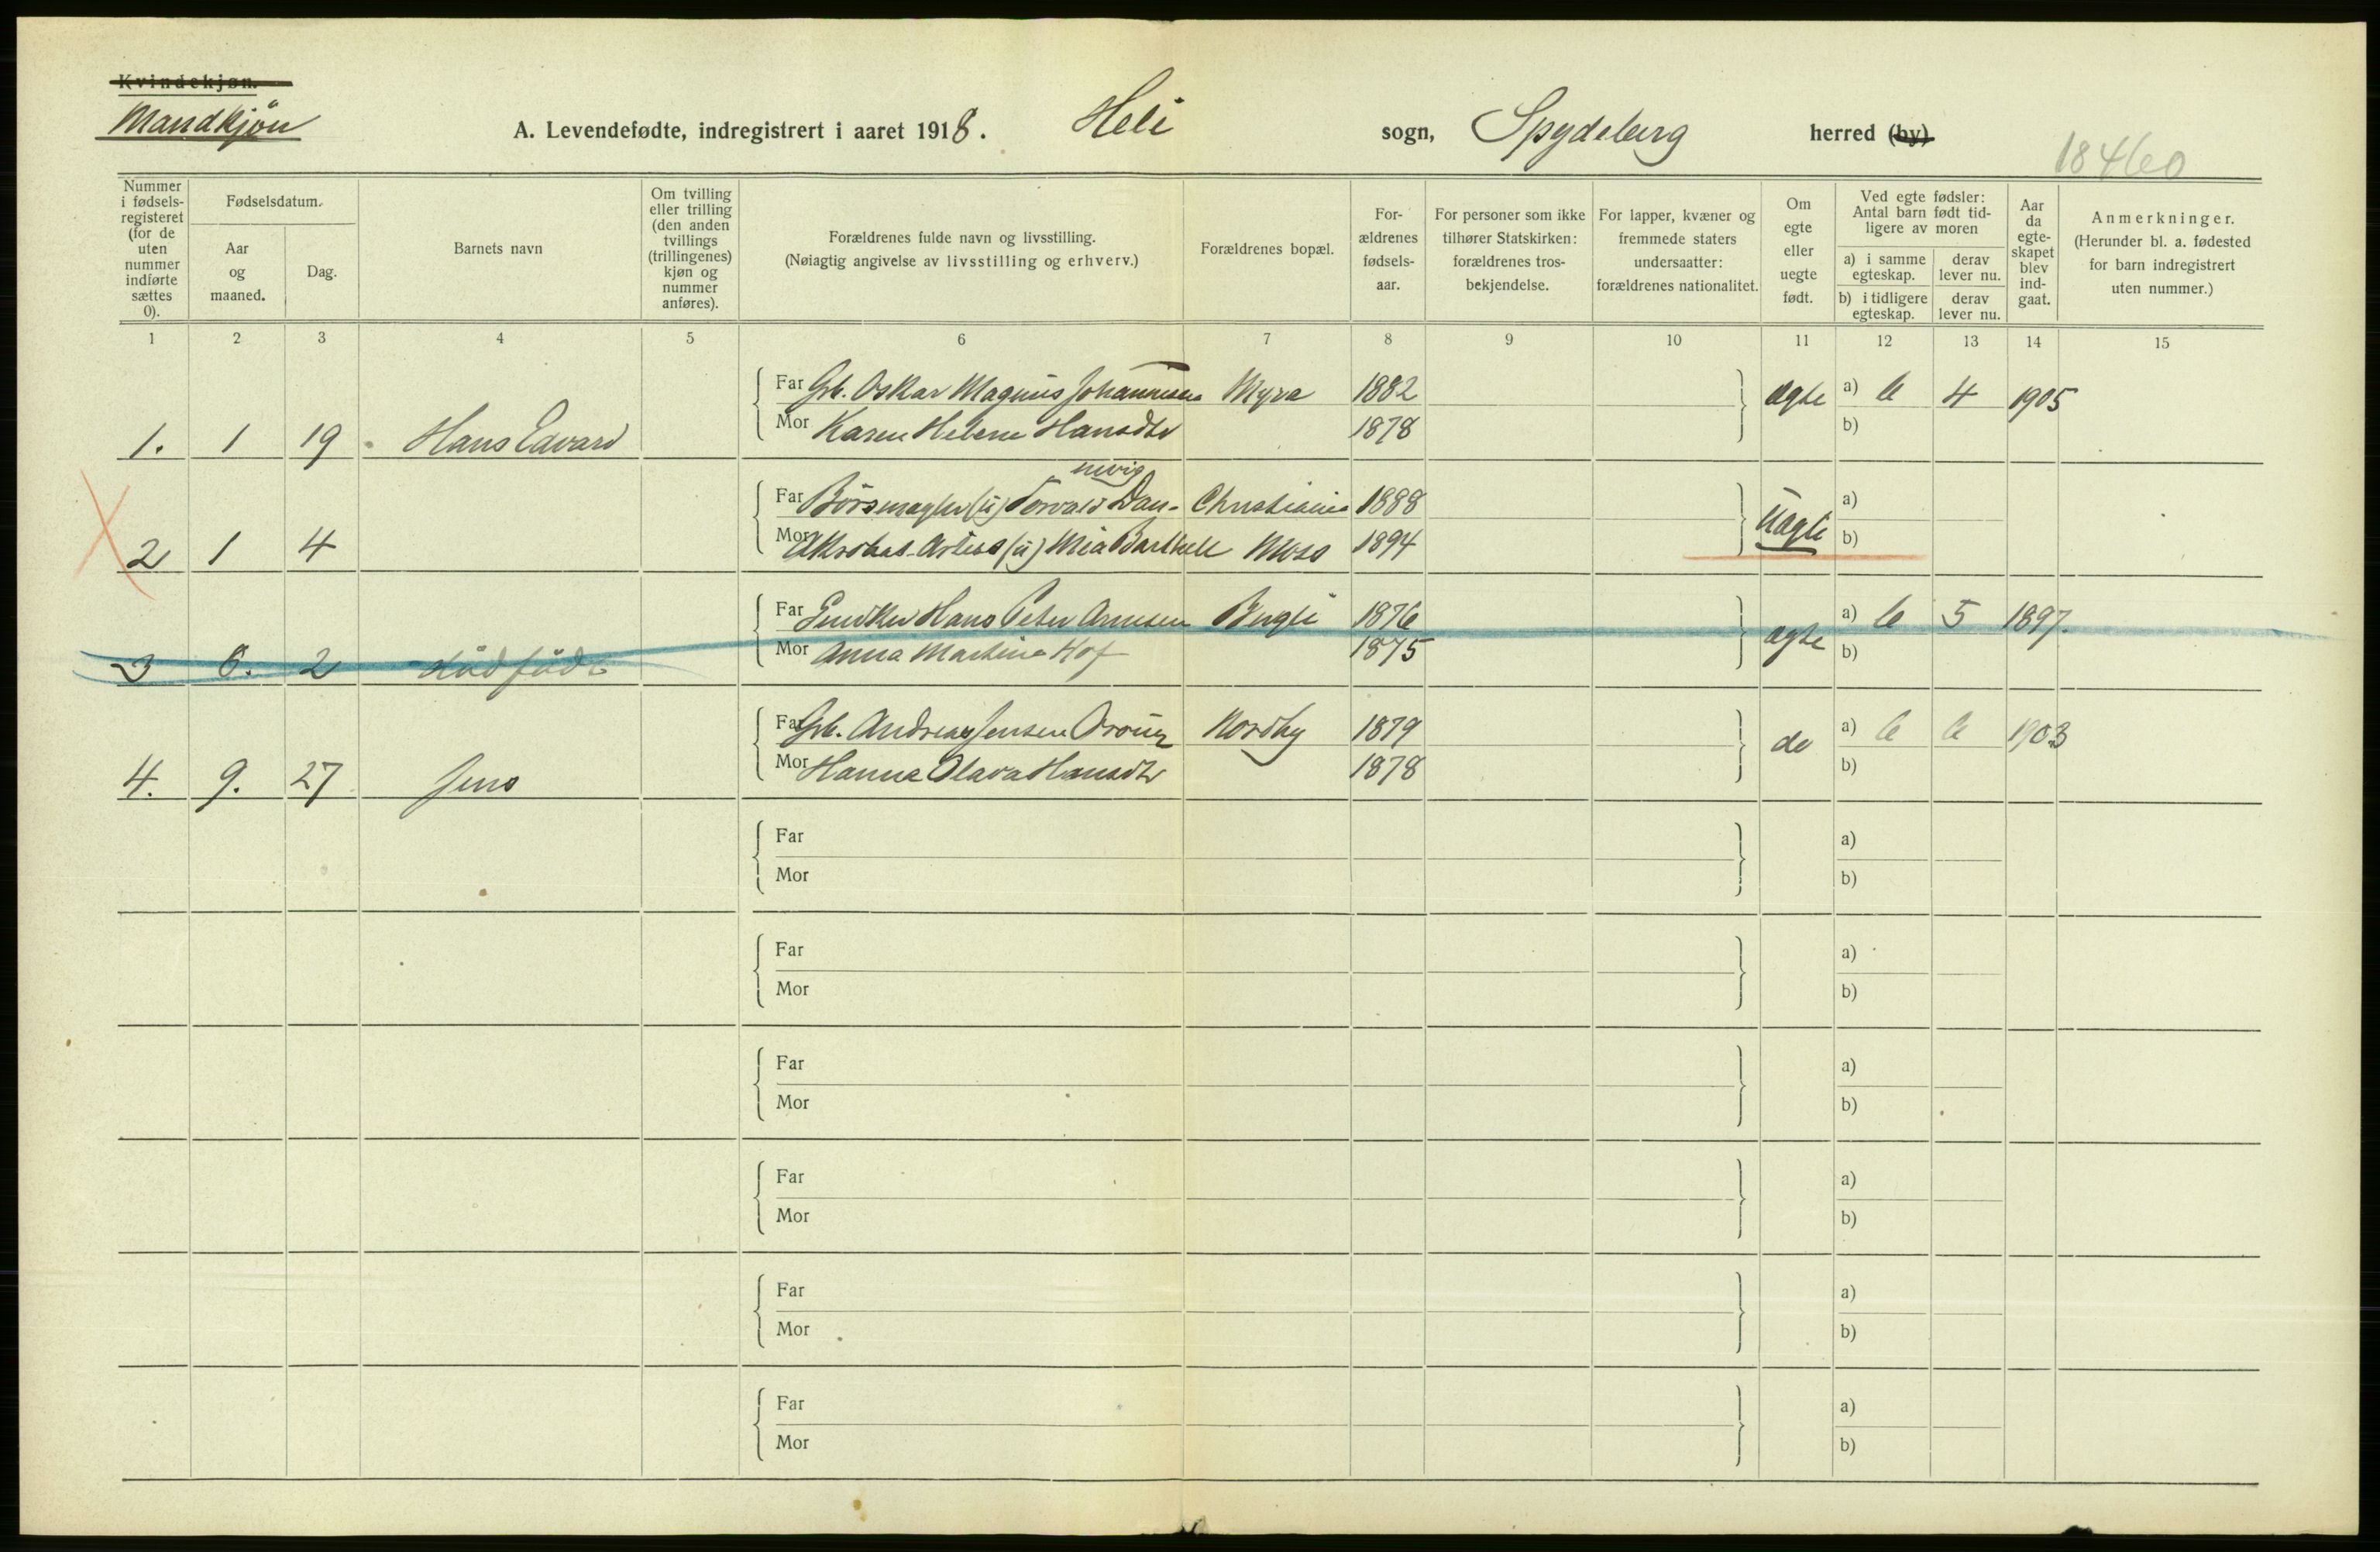 Kvindekjøn.
Mandkjøn
A. Levendefødte, indregistrert i aaret 1918. Heli sogn, Spydeberg herred (by)
18460
Nummer i fødselsregisteret (for de uten nummer indførte sættes 0).
Fødselsdatum.
Aar og maaned.
Dag.
Barnets navn
Om tvilling eller trilling (den anden tvillings (trillingenes) kjøn og nummer anføres).
Forældrenes fulde navn og livsstilling.
(Nøiagtig angivelse av livsstilling og erhverv.)
Forældrenes bopæl.
For-ældrenes fødsels-aar.
For personer som ikke tilhører Statskirken: forældrenes tros-bekjendelse.
For lapper, kvæner og fremmede staters undersaatter: forældrenes nationalitet.
Om egte eller uegte født.
Ved egte fødsler: Antal barn født tid-ligere av moren
a) i samme egteskap.
derav lever nu.
b) i tidligere egteskap.
derav lever nu.
Aar da egte-skapet blev ind-gaat.
Anmerkninger.
(Herunder bl. a. fødested for barn indregistrert uten nummer.)
1 2 3 4 5 6 7 8 9 10 11 12 13 14 15
Far Grb. Oskar Magnus Johannesen Myra 1882 ægte a) 6 4 1905
Mor Karen Helene Hansdtr 1878 b)
1. 1 19 Hans Edvard
nevig
Far Börsmægler (ü) Torvald Dan- Christiania 1888 a)
Mor Akrobat-Artist (ü) Mia Barthell Moss 1894 Uægte b)
2 1 4
Far Hans Peter Arnesen 1876 a) 6 5 1897.
Mor Anna Martine Hof 1875 ægte b)
3 6. 2 dödfödt
Far Grb. Andreas Jensen Nordby 1879 do a) 6 6 1903
Mor Hanna Olava Hansdtr 1878 b)
4. 9. 27 Jens
Far a)
Mor b)
Far a)
Mor b)
Far a)
Mor b)
Far a)
Mor b)
Far a)
Mor b)
Far a)
Mor b)